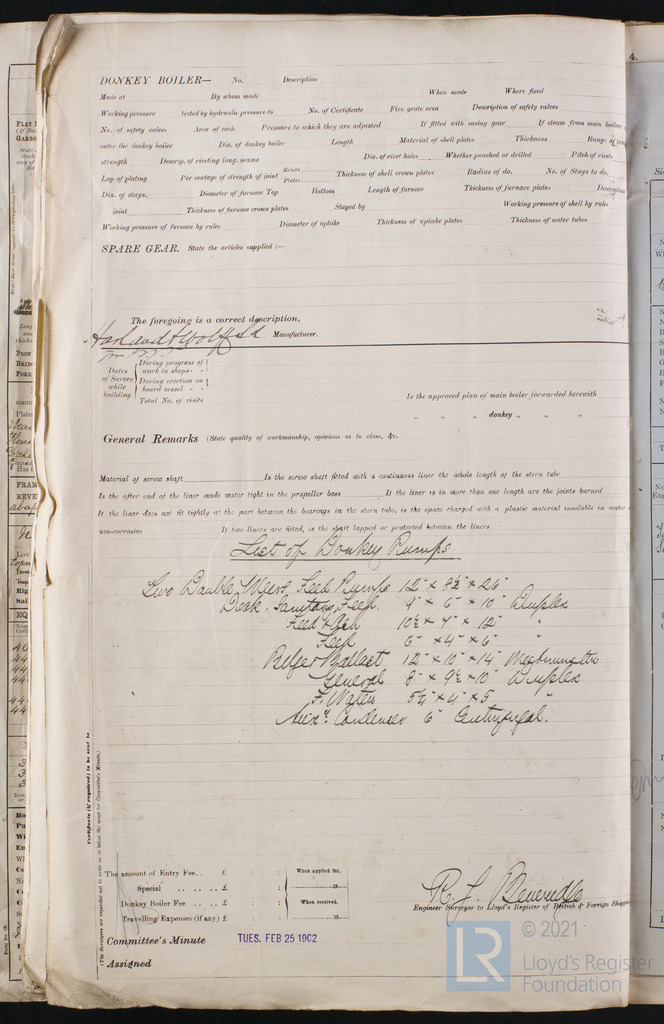 4.
DONKEY BOILER— No. Description
Made at By whom made When made Where fixed
Working pressure tested by hydraulic pressure to No. of Certificate Fire grate area Description of safety valves
No. of safety valves Area of each Pressure to which they are adjusted If fitted with easing gear If steam from main boilers
enter the donkey boiler Dia. of donkey boiler Length Material of shell plates Thickness Range of
strength Descrip. of riveting long. seams Dia. of rivet holes Whether punched or drilled Pitch of rivets
Lap of plating Per centage of strength of joint Rivets Plates Thickness of shell crown plates Radius of do. No. of Stays to do.
Dia. of stays. Diameter of furnace Top Bottom Length of furnace Thickness of furnace plates Description
joint Thickness of furnace crown plates Stayed by Working pressure of shell by rules
Working pressure of furnace by rules Diameter of uptake Thickness of uptake plates Thickness of water tubes
SPARE GEAR. State the articles supplied :—
The foregoing is a correct description,
Harland & Wolff Ld Manufacturer.
Dates of Survey while building
During progress of work in shops - -
During erection on board vessel - - -
Total No. of visits
Is the approved plan of main boiler forwarded herewith
" " donkey " " "
General Remarks (State quality of workmanship, opinions as to class, &c.
Material of screw shaft Is the screw shaft fitted with a continuous liner the whole length of the stern tube
Is the after end of the liner made water tight in the propeller boss If the liner is in more than one length are the joints burned
If the liner does not fit tightly at the part between the bearings in the stern tube, is the space charged with a plastic material insoluble in water
non-corrosive If two liners are fitted, is the shaft lapped or protected between the liners
List of Donkey Pumps
Two Double Weirs Feed Pumps 12" × 8½" × 26"
Deck. Sanitary. Feed. 9" × 6" × 10" Duplex
Feed & Ash 10½ × 7" × 12" "
Feed 6" × 4" × 6" "
Bilge & Ballast 12" × 10" × 14"
General 8" × 9½ × 10" Duplex
F. Water 5¼" × 4" × 5 "
Auxy. Condenser 6" Centrifugal.
Certificate (if required) to be sent to
(The Surveyors are requested not to write on or below the space for Committee's Minute.)
The amount of Entry Fee.. £ : : When applied for,
Special .. .. .. £ : : 19
Donkey Boiler Fee .. .. £ : : When received,
Travelling Expenses (if any) £ : : 19
R. L. Beveridge
Engineer Surveyor to Lloyd's Register of British & Foreign Shipping
Committee's Minute TUES. FEB 25 1902
Assigned
LR © 2021
Lloyd's Register
Foundation